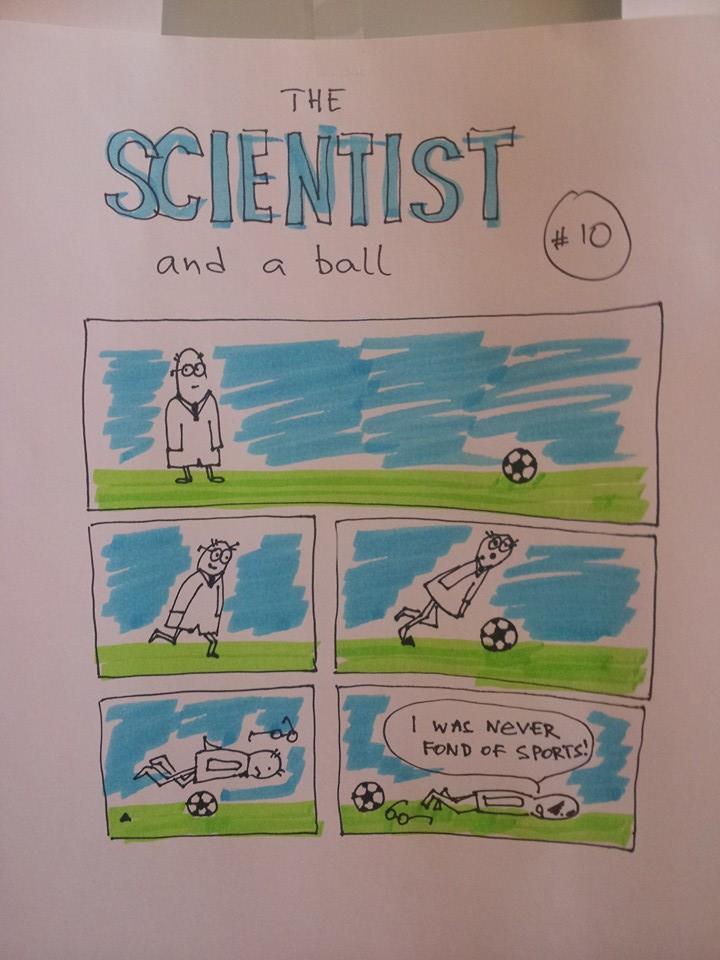 THE
SCIENTIST
and a ball
# 10
I WAS NEVER
FOND OF SPORTS!